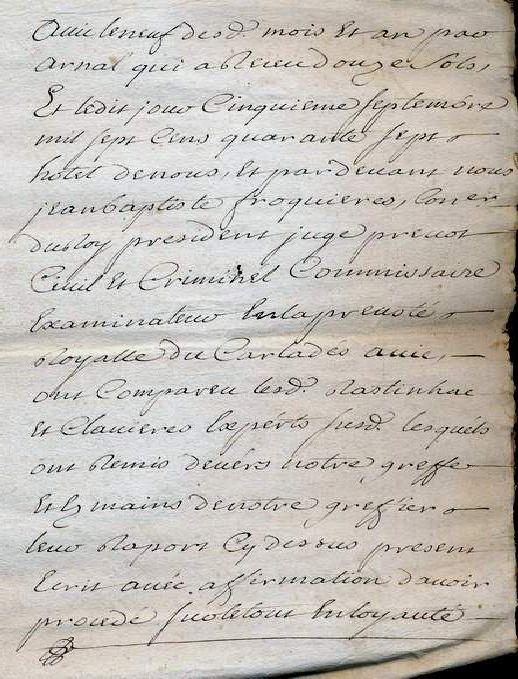 a vic le neuf desd. mois et an par
arnal qui a Receu douze Sols,
Et ledit jour Cinquieme Septembre
mil sept Cens quarante sept
hotel de nous, Et pardevant nous
jean baptiste froquieres, Coner
du Roy president juge prevot
Civil Et Criminel Commissaire
Examinateur En la prevoté
Royalle du Carladés a vic,
ont Compareu lesd. Rastinhac
et Clavieres Experts susd. lesquéls
ont Remis devérs notre greffe
Et Es mains de notre greffier
leur Raport Cy dessus present
Ecrit avéc affirmation d'avoir
procedé sur le tout En loyauté